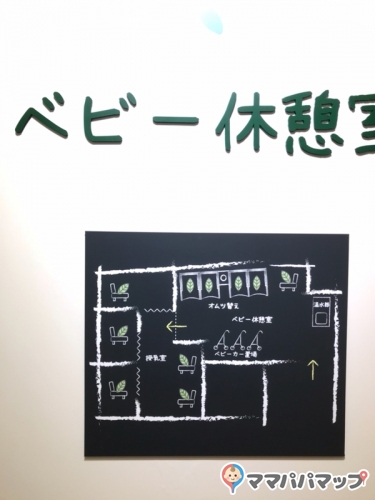 ベビー休憩室
オムツ替え
湯水器
ベビー休憩室
授乳室
ベビーカー置場
ママパパマップ